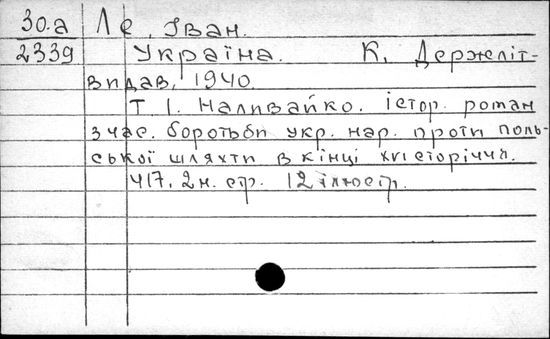 30.а Ле, Іван.
2339 Україна. К. Держліт-
видав, 1940.
Т. 1. Наливайко. істор. роман
з час. боротьби укр. нар. проти поль-
ської шляхти в кінці XVI сторіччя.
417, 2 н. стр. 12 ілюстр.